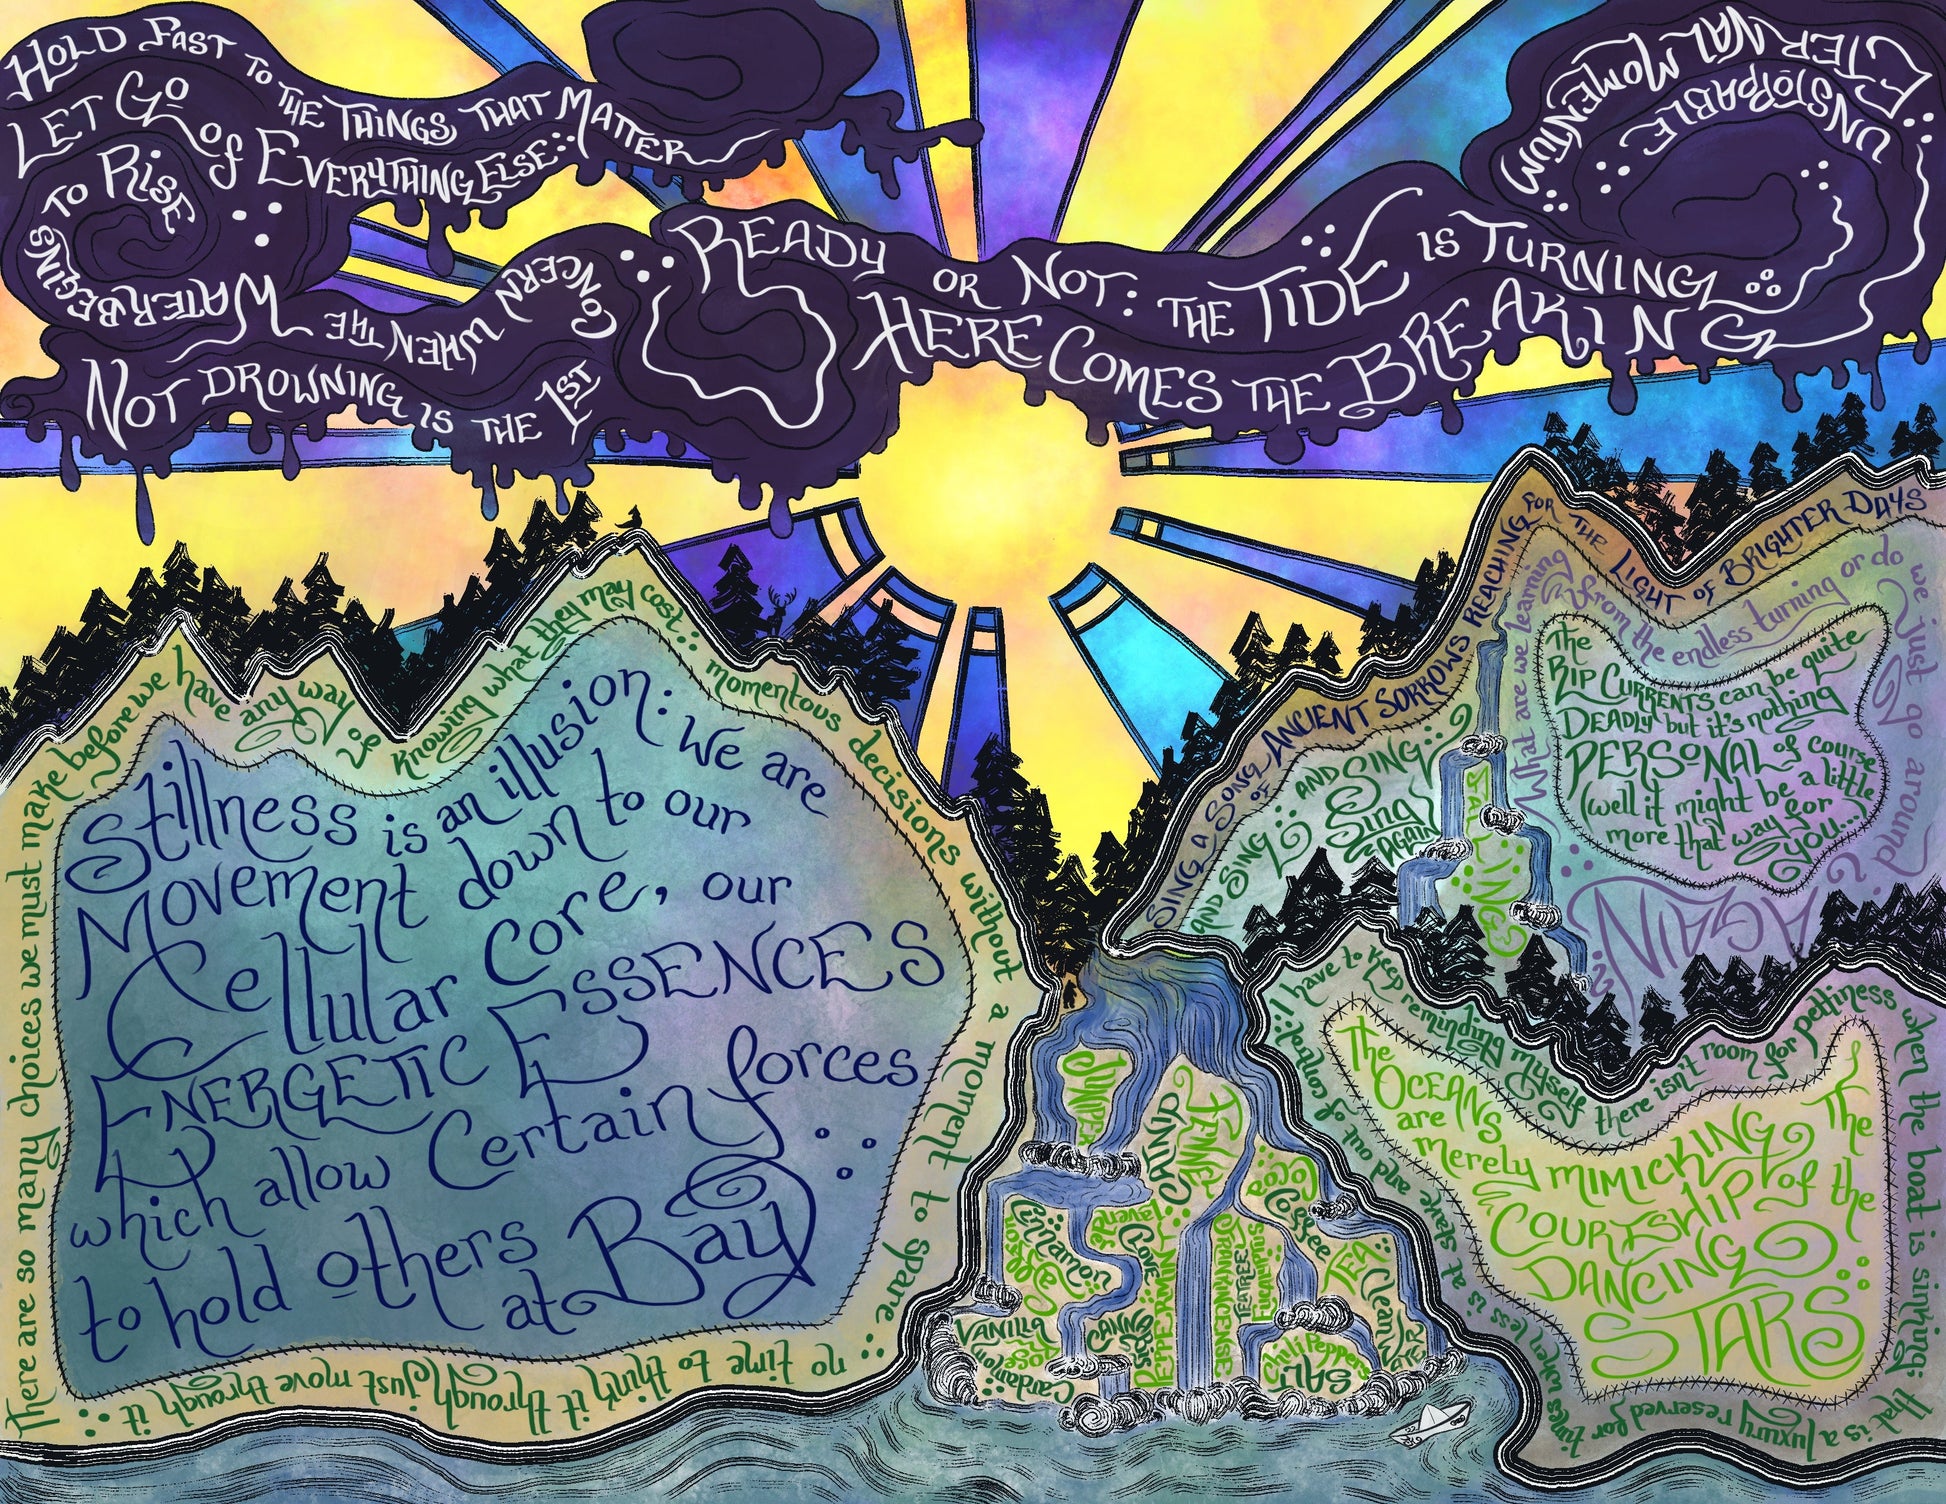 HOLD FAST TO THE THINGS THAT MATTER
LET GO of EVERYTHING ELSE:
NOT DROWNING IS THE 1ST
CONCERN WHEN THE
WATER BEGINS
TO RISE
READY OR NOT: THE TIDE IS TURNING
HERE COMES THE BREAKING
UNSTOPPABLE
ETERNAL MOMENTUM
There are so many choices we must make before we have any way of knowing what they may cost: momentous decisions without a moment to spare: no time to think it through just move through it
Stillness is an illusion: We are
Movement down to our
Cellular Core, our
ENERGETIC ESSENCES
which allow Certain forces
to hold others at Bay
SING A SONG OF ANCIENT SORROWS REACHING FOR THE LIGHT OF BRIGHTER DAYS
AND SING: AND SING:
Sing
AGAIN
What are we learning from the endless turning or do we just go around
AGAIN?
The
RIP CURRENTS can be quite
DEADLY but it's nothing
PERSONAL of course
(well it might be a little
more that way for
you...)
I have to keep reminding myself there isn't room for pettiness when the boat is sinking: that is a luxury reserved for times when less is at stake and out of control:
The
OCEANS
are
merely MIMICKING The
COURTSHIP of the
DANCING
STARS
JUNIPER
CAJUN
Cocoa
Coffee
TEA
Cinnamon
Saffron
Clove
lavender
PEPPERMINT
FRANKINCENSE
TEATREE
Eucalyptus
Clean Laundry
VANILLA
Rose
CANNABIS
Cardamom
Chili Peppers
SALT